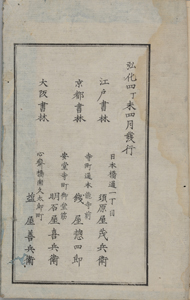 弘化四丁未四月發行
江戸書林
日本橋通一丁目
須原屋茂兵衛
京都書林
寺町通本能寺前
錢屋惣四郎
大阪書林
安堂寺町
明石屋喜兵衛
心齋橋南久太郎町
屋善兵衛